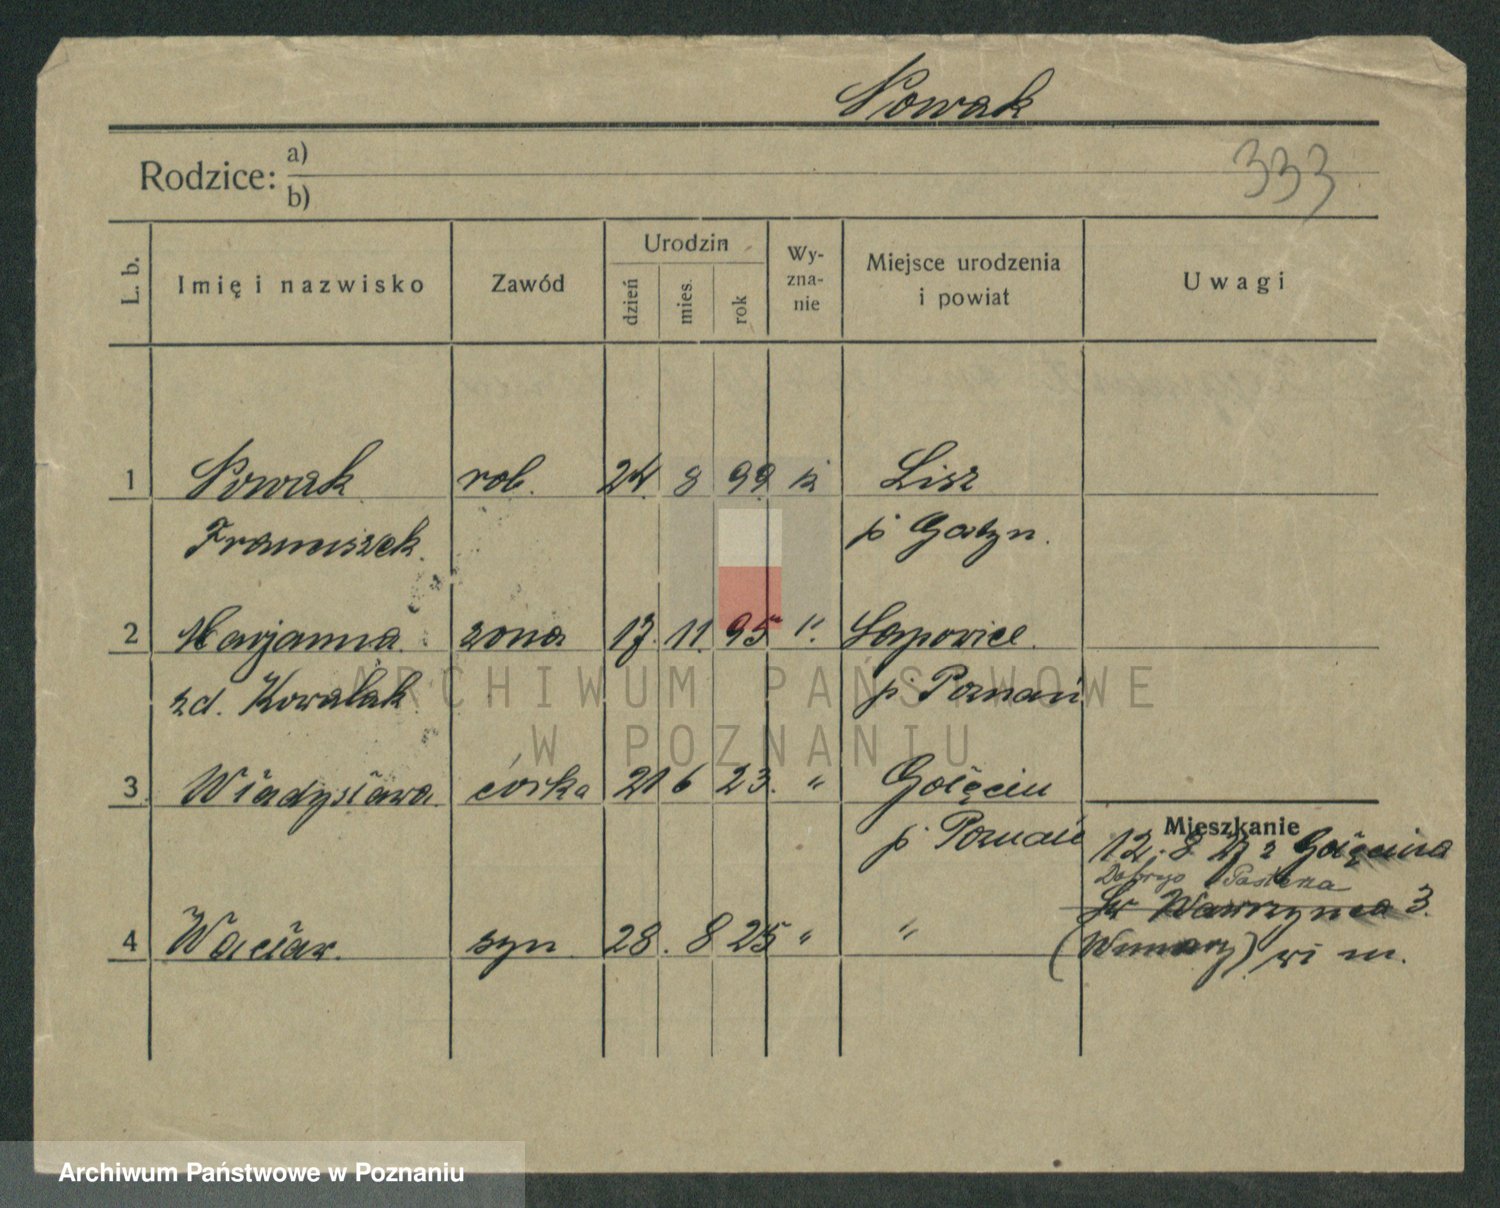 Nowak
Rodzice: a)
b)
333
L. b. Imię i nazwisko Zawód Urodzin dzień mies. rok Wyznanie Miejsce urodzenia i powiat Uwagi
1 Nowak rob. 24. 8 99 k Lisz
Franciszek p. Gostyn.
2 Marjanna żona 17. 11. 95 ". Sapowice
zd. Kowalak p. Poznań
3 Władysława córka 21 6 23. " Golęcin
p. Poznań
Mieszkanie
12. 8 27 z Golęcina
Dobrego Pasterza
Św Wawrzynca 3.
4 Wacław syn 28. 8 25 " "
(Winiary) wł m.
ARCHIWUM PAŃSTWOWE
W POZNANIU
Archiwum Państwowe w Poznaniu